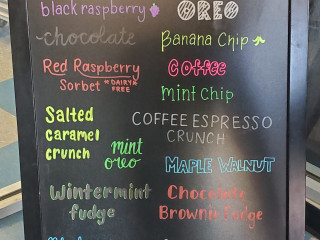 black raspberry
OREO
chocolate
Banana Chip
Red Raspberry
Sorbet DAIRY FREE
Coffee
mint Chip
Salted
caramel
crunch
COFFEE ESPRESSO
CRUNCH
mint
oreo
MAPLE WALNUT
Wintermint
fudge
Chocolate
Brownie Fudge